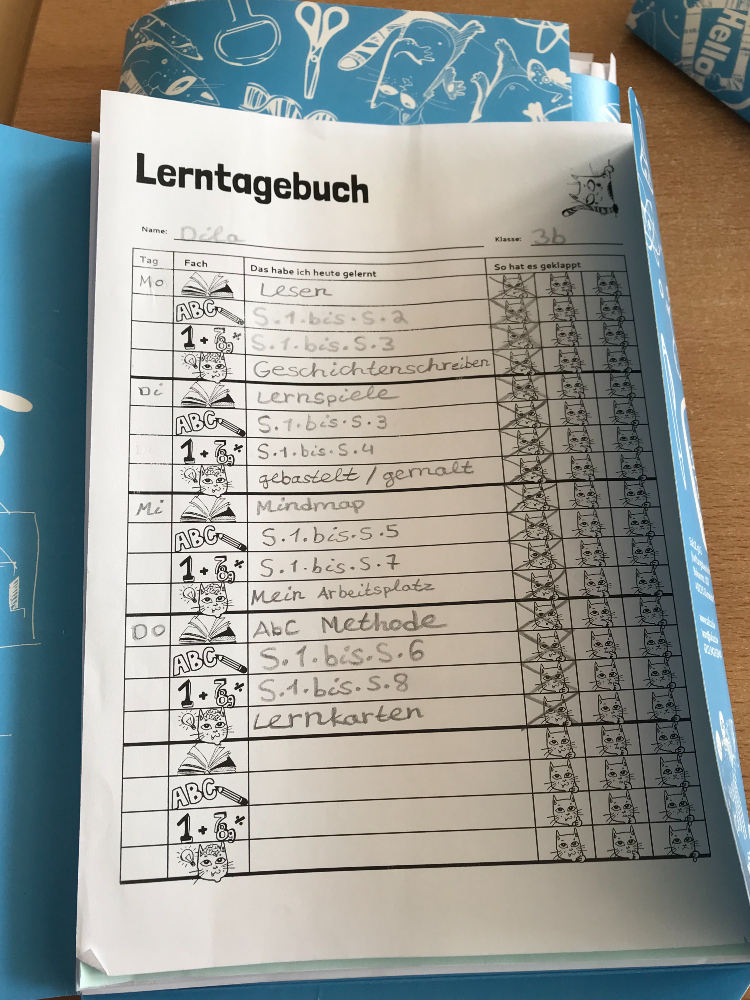 Hello
Lerntagebuch
Name: Dila Klasse: 3b
Tag Fach Das habe ich heute gelernt So hat es geklappt
Mo Lesen
ABC S.1.bis.S.2
1 + 7 8 × S.1.bis.S.3
Geschichtenschreiben
Di Lernspiele
ABC S.1.bis.S.3
1 + 7 8 × S.1.bis.S.4
gebastelt / gemalt
Mi Mindmap
ABC S.1.bis.S.5
1 + 7 8 × S.1.bis.S.7
Mein Arbeitsplatz
Do AbC Methode
ABC S.1.bis.S.6
1 + 7 8 × S.1.bis.S.8
Lernkarten
ABC
1 + 7 8 ×